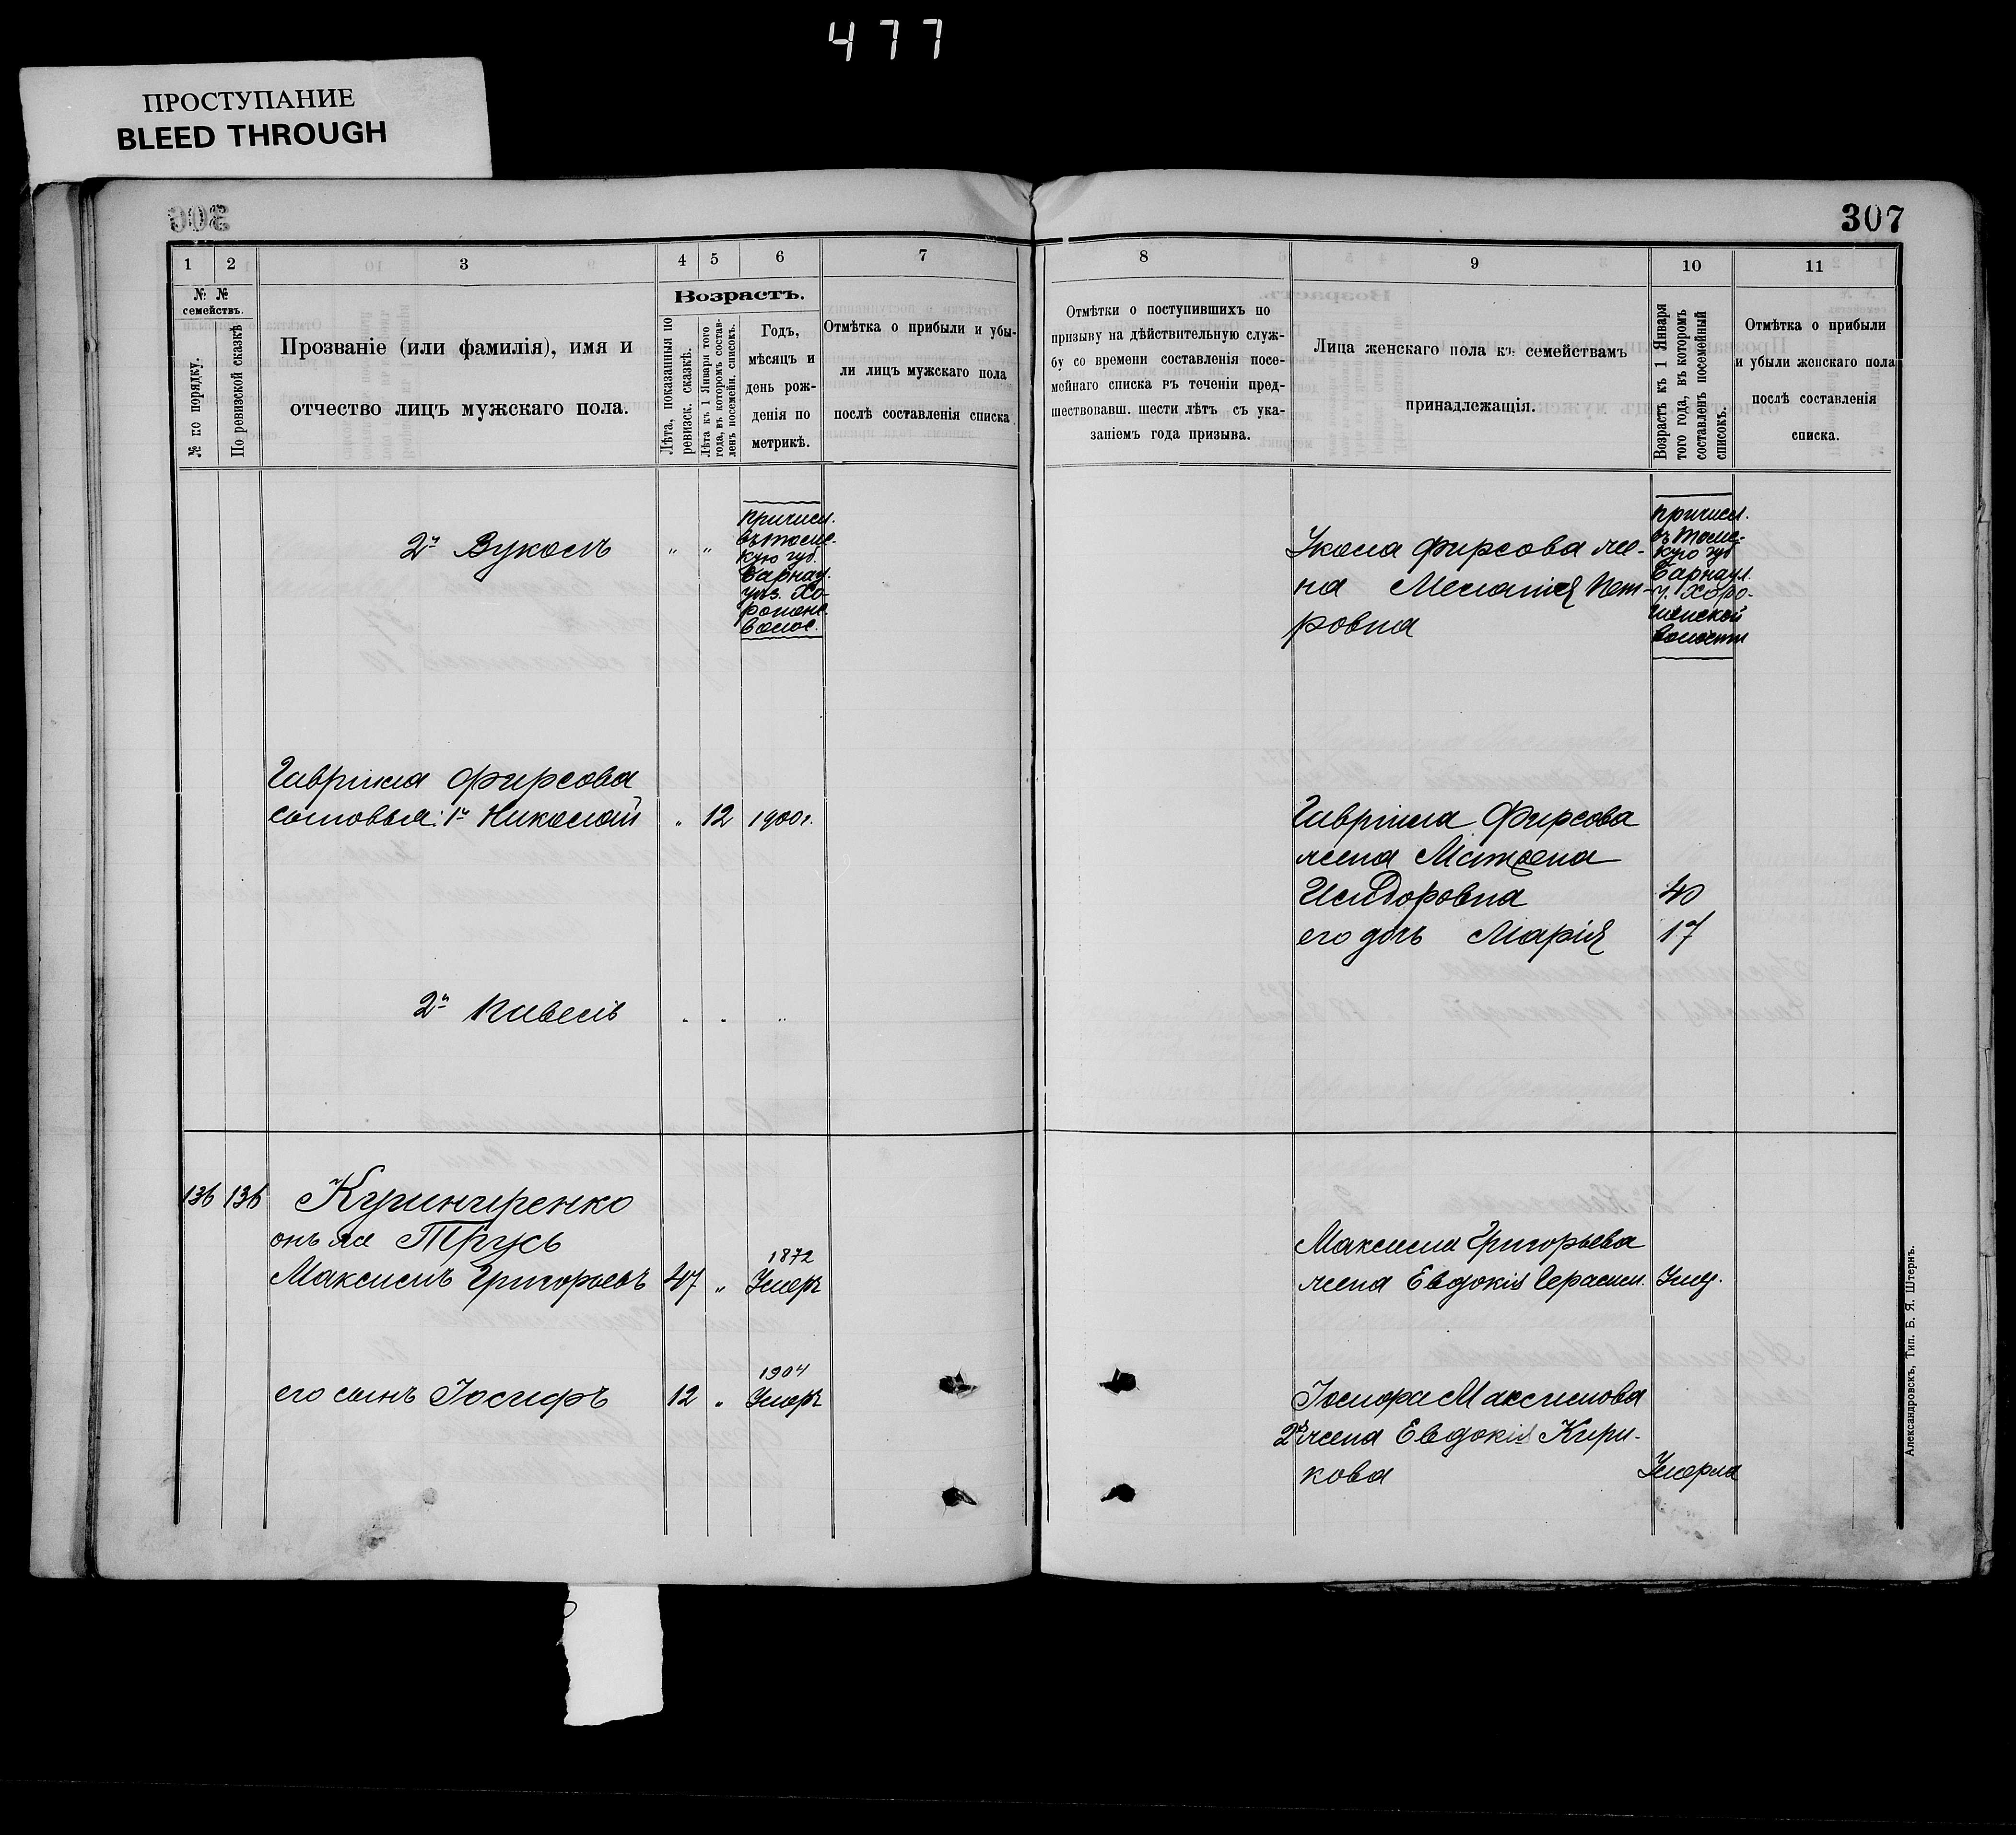 477
ПРОСТУПАНИЕ
BLEED THROUGH
306
1
2
3
4
5
6
7
№ №
семействъ.
№ по порядку.
По ревизской сказкѣ
Прозваніе (или фамилія), имя и
отчество лицъ мужскаго пола.
Возрастъ.
Лѣта, показанныя по
ревизск. сказкѣ.
Лѣта къ 1 Января того
года, въ которомъ состав-
ленъ посемейн. списокъ.
Годъ,
мѣсяцъ и
день рож-
денія по
метрикѣ.
Отмѣтка о прибыли и убы-
ли лицъ мужскаго пола
послѣ составленія списка
2й Вуколъ " "
причисл.
въ Томс-
кую губ.
Барнаул.
уѣз. Хо-
рошенс.
волос.
Гавріила Фирсова
сыновья: 1й Николай " 12 1900г.
2й
136 136 Кушниренко
онъ же Трусь
1872
Максимъ Григорьевъ 47 " Умеръ
1904
его сынъ Іосифъ 12 " Умеръ
307
8
9
10
11
Отмѣтки о поступившихъ по
призыву на дѣйствительную служ-
бу со времени составленія посе-
мейнаго списка въ теченіи пред-
шествовавш. шести лѣтъ съ ука-
заніемъ года призыва.
Лица женскаго пола къ семействамъ
принадлежащія.
Возрастъ къ 1 Января
того года, въ которомъ
составленъ посемейный
списокъ.
Отмѣтка о прибыли
и убыли женскаго пола
послѣ составленія
списка.
Фирсова же-
на Меланія Пет-
ровна
причисл.
въ Томс-
кую губ
Барнаул.
у. Хоро-
шенской
волости
Гавріила Фирсова
жена Матрена
Исидоровна 40
его дочь Марія 17
Максима Григорьева
жена Евдокія Герасим. Умер.
Іосифа Максимова
2я жена Евдокія Кири-
кова Умерла
Александровскъ, Тип. Б. Я. Штернъ.